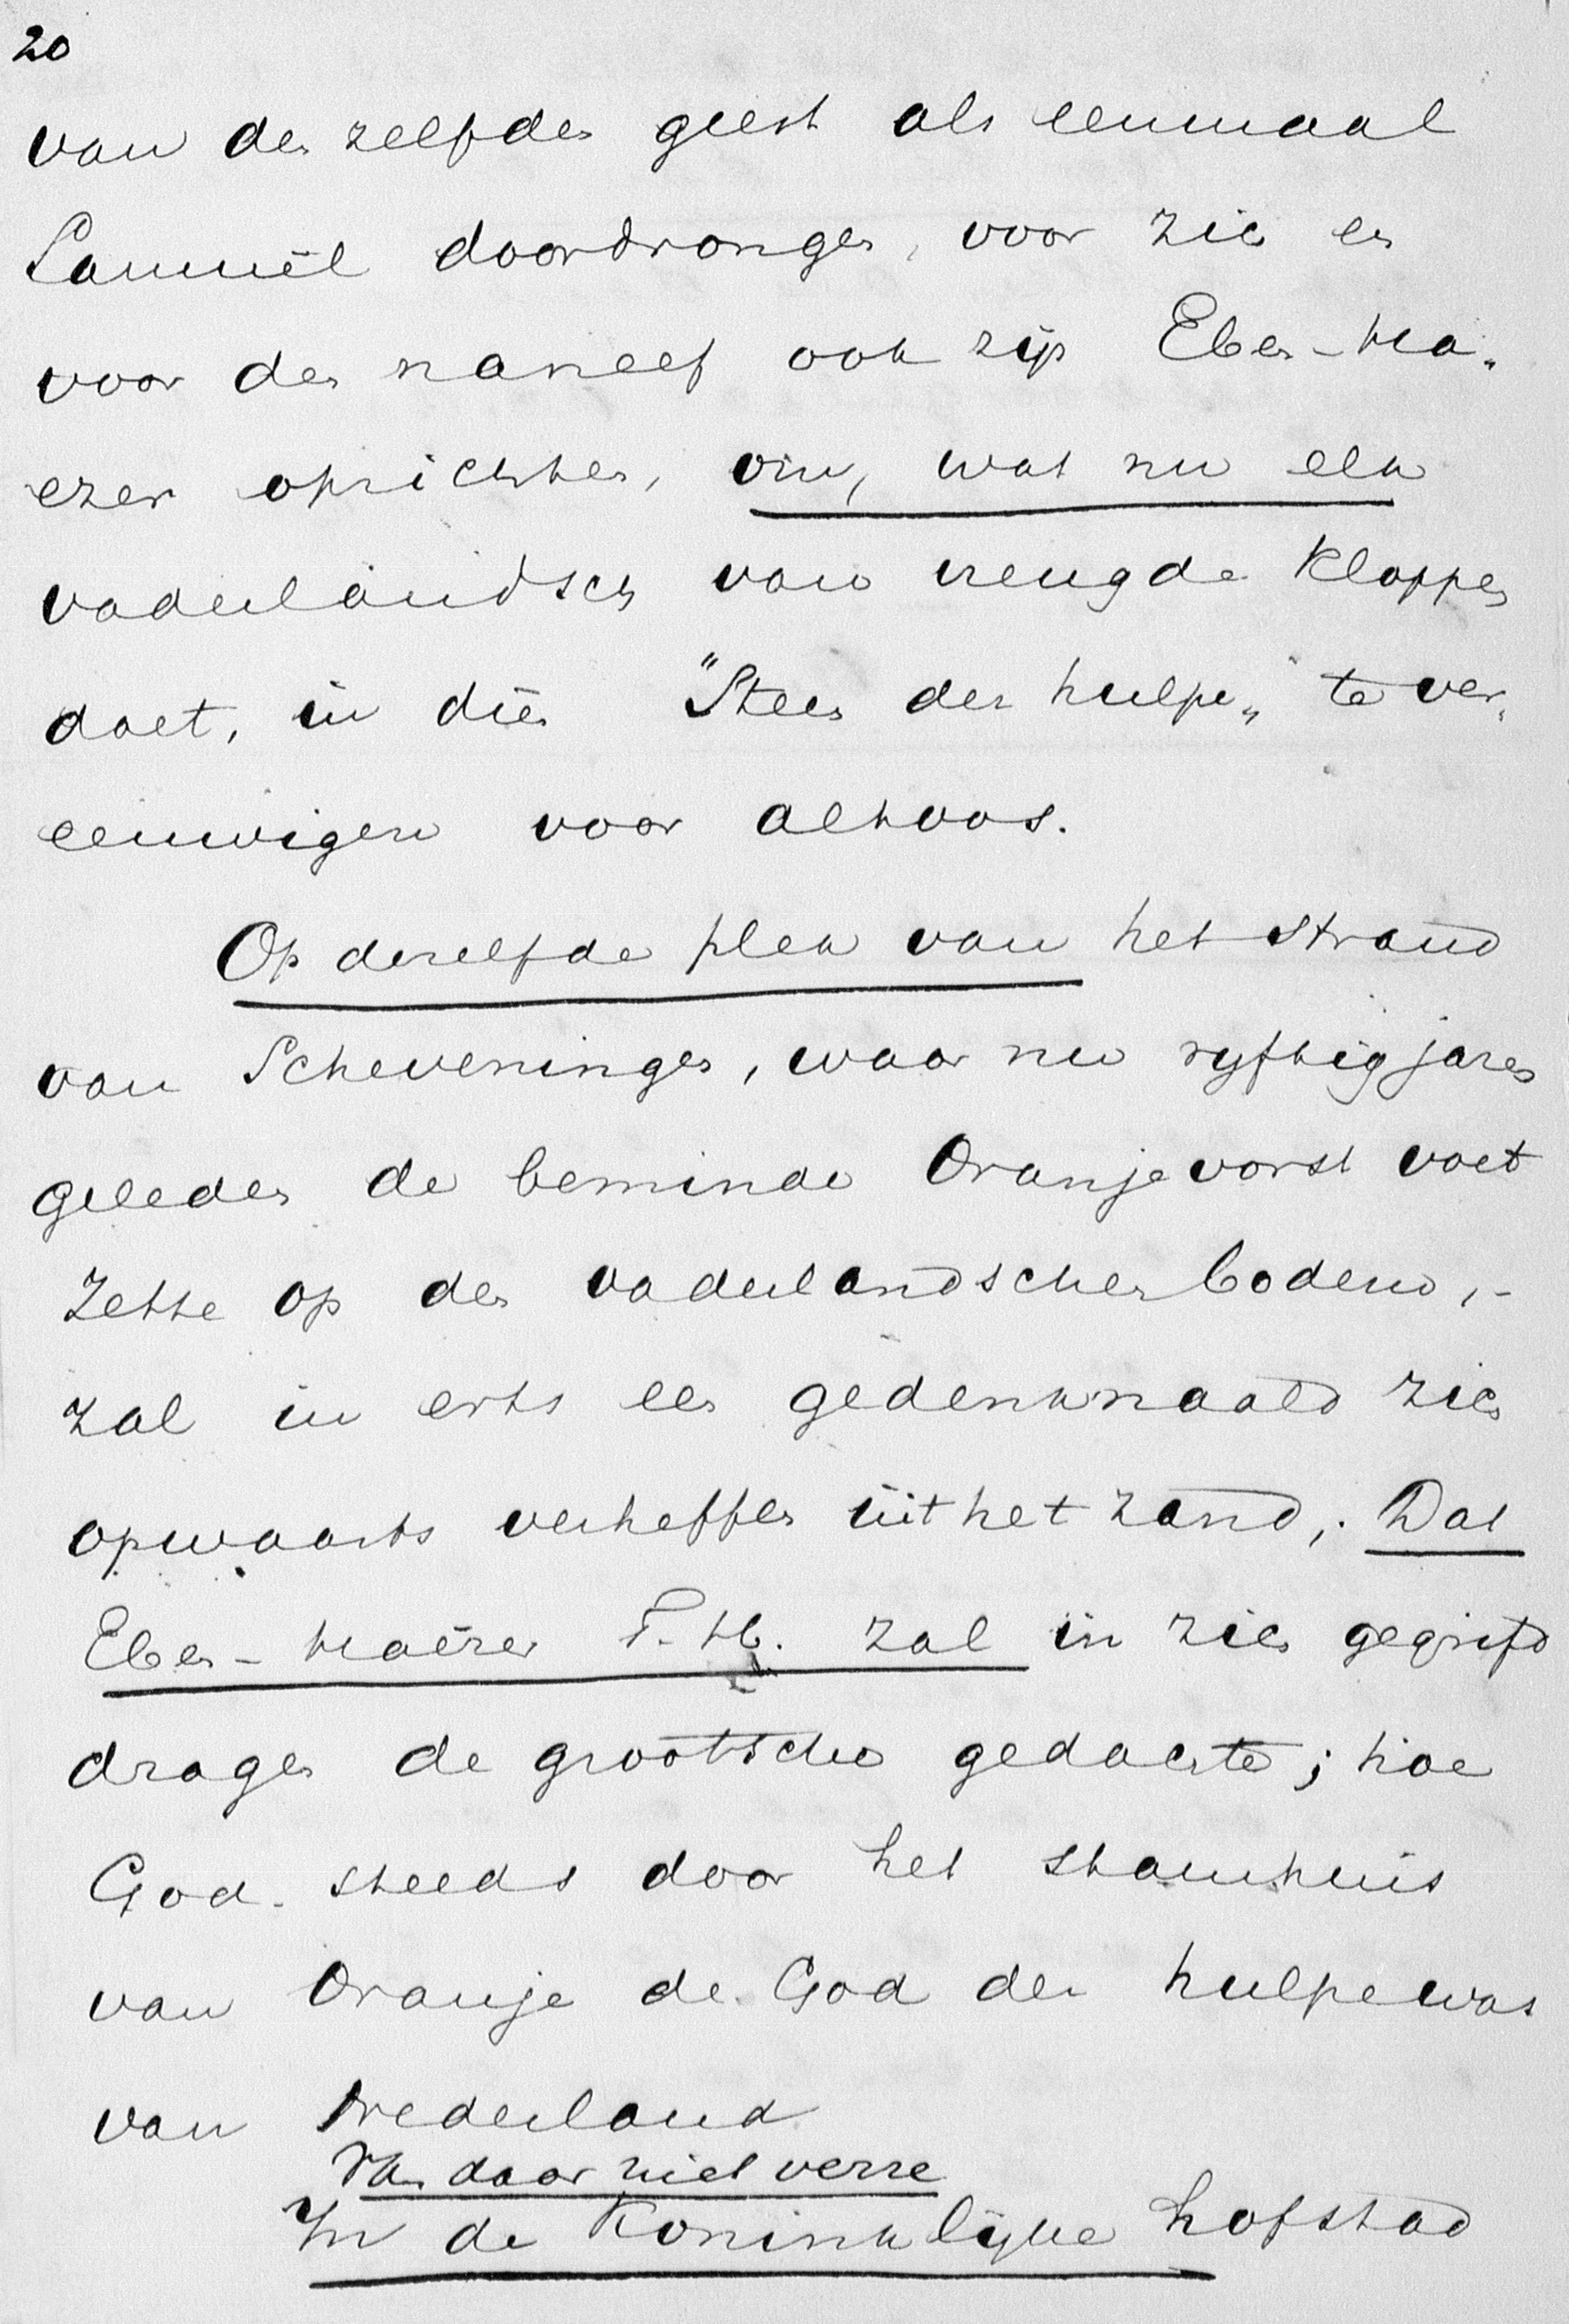 20
van den zelfden geest als eenmaal
Samuël doordrongen, voor zich en
voor den naneef ook zijn Eben-Ha„
ezer oprichten, om, wat nu elk
vaderlandsch van vreugde kloppen
doet, in dien "Steen der hulpe„ te ver„
eeuwigen voor altoos.
Op dezelfde plek van het strand
van Scheveningen, waar nu vyftig jaren
geleden de beminde Oranjevorst voet
zette op den vaderlandschen bodem, -
zal in erts een gedenknaald zich
opwaarts verheffen uit het zand; Dat
Eben-Haëzer T.H. zal in zich gegrifd
dragen de grootsche gedachte; hoe
God steeds door het stamhuis
van Oranje de God der hulpe was
van Nederland
Van daar niet verre
In de Koninklijke hofstad